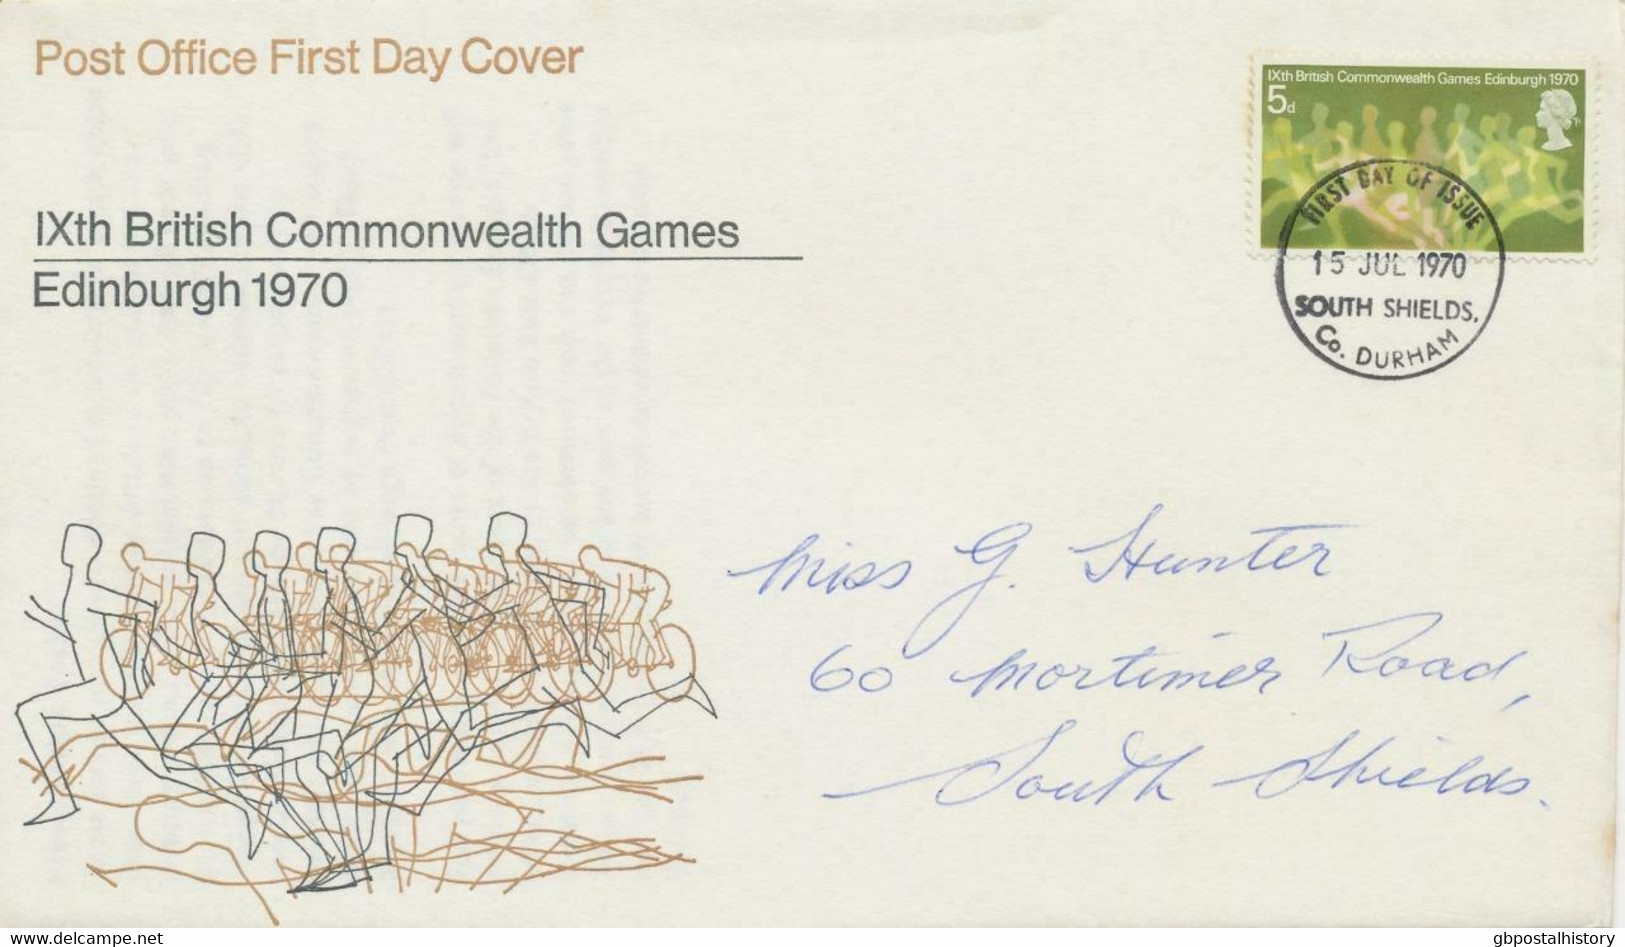 Post Office First Day Cover
IXth British Commonwealth Games Edinburgh 1970
5d
FIRST DAY OF ISSUE
15 JUL 1970
SOUTH SHIELDS.
Co. DURHAM
IXth British Commonwealth Games
Edinburgh 1970
Miss G. Hunter
60 Mortimer Road,
South Shields.
www.delcampe.net
gbpostalhistory